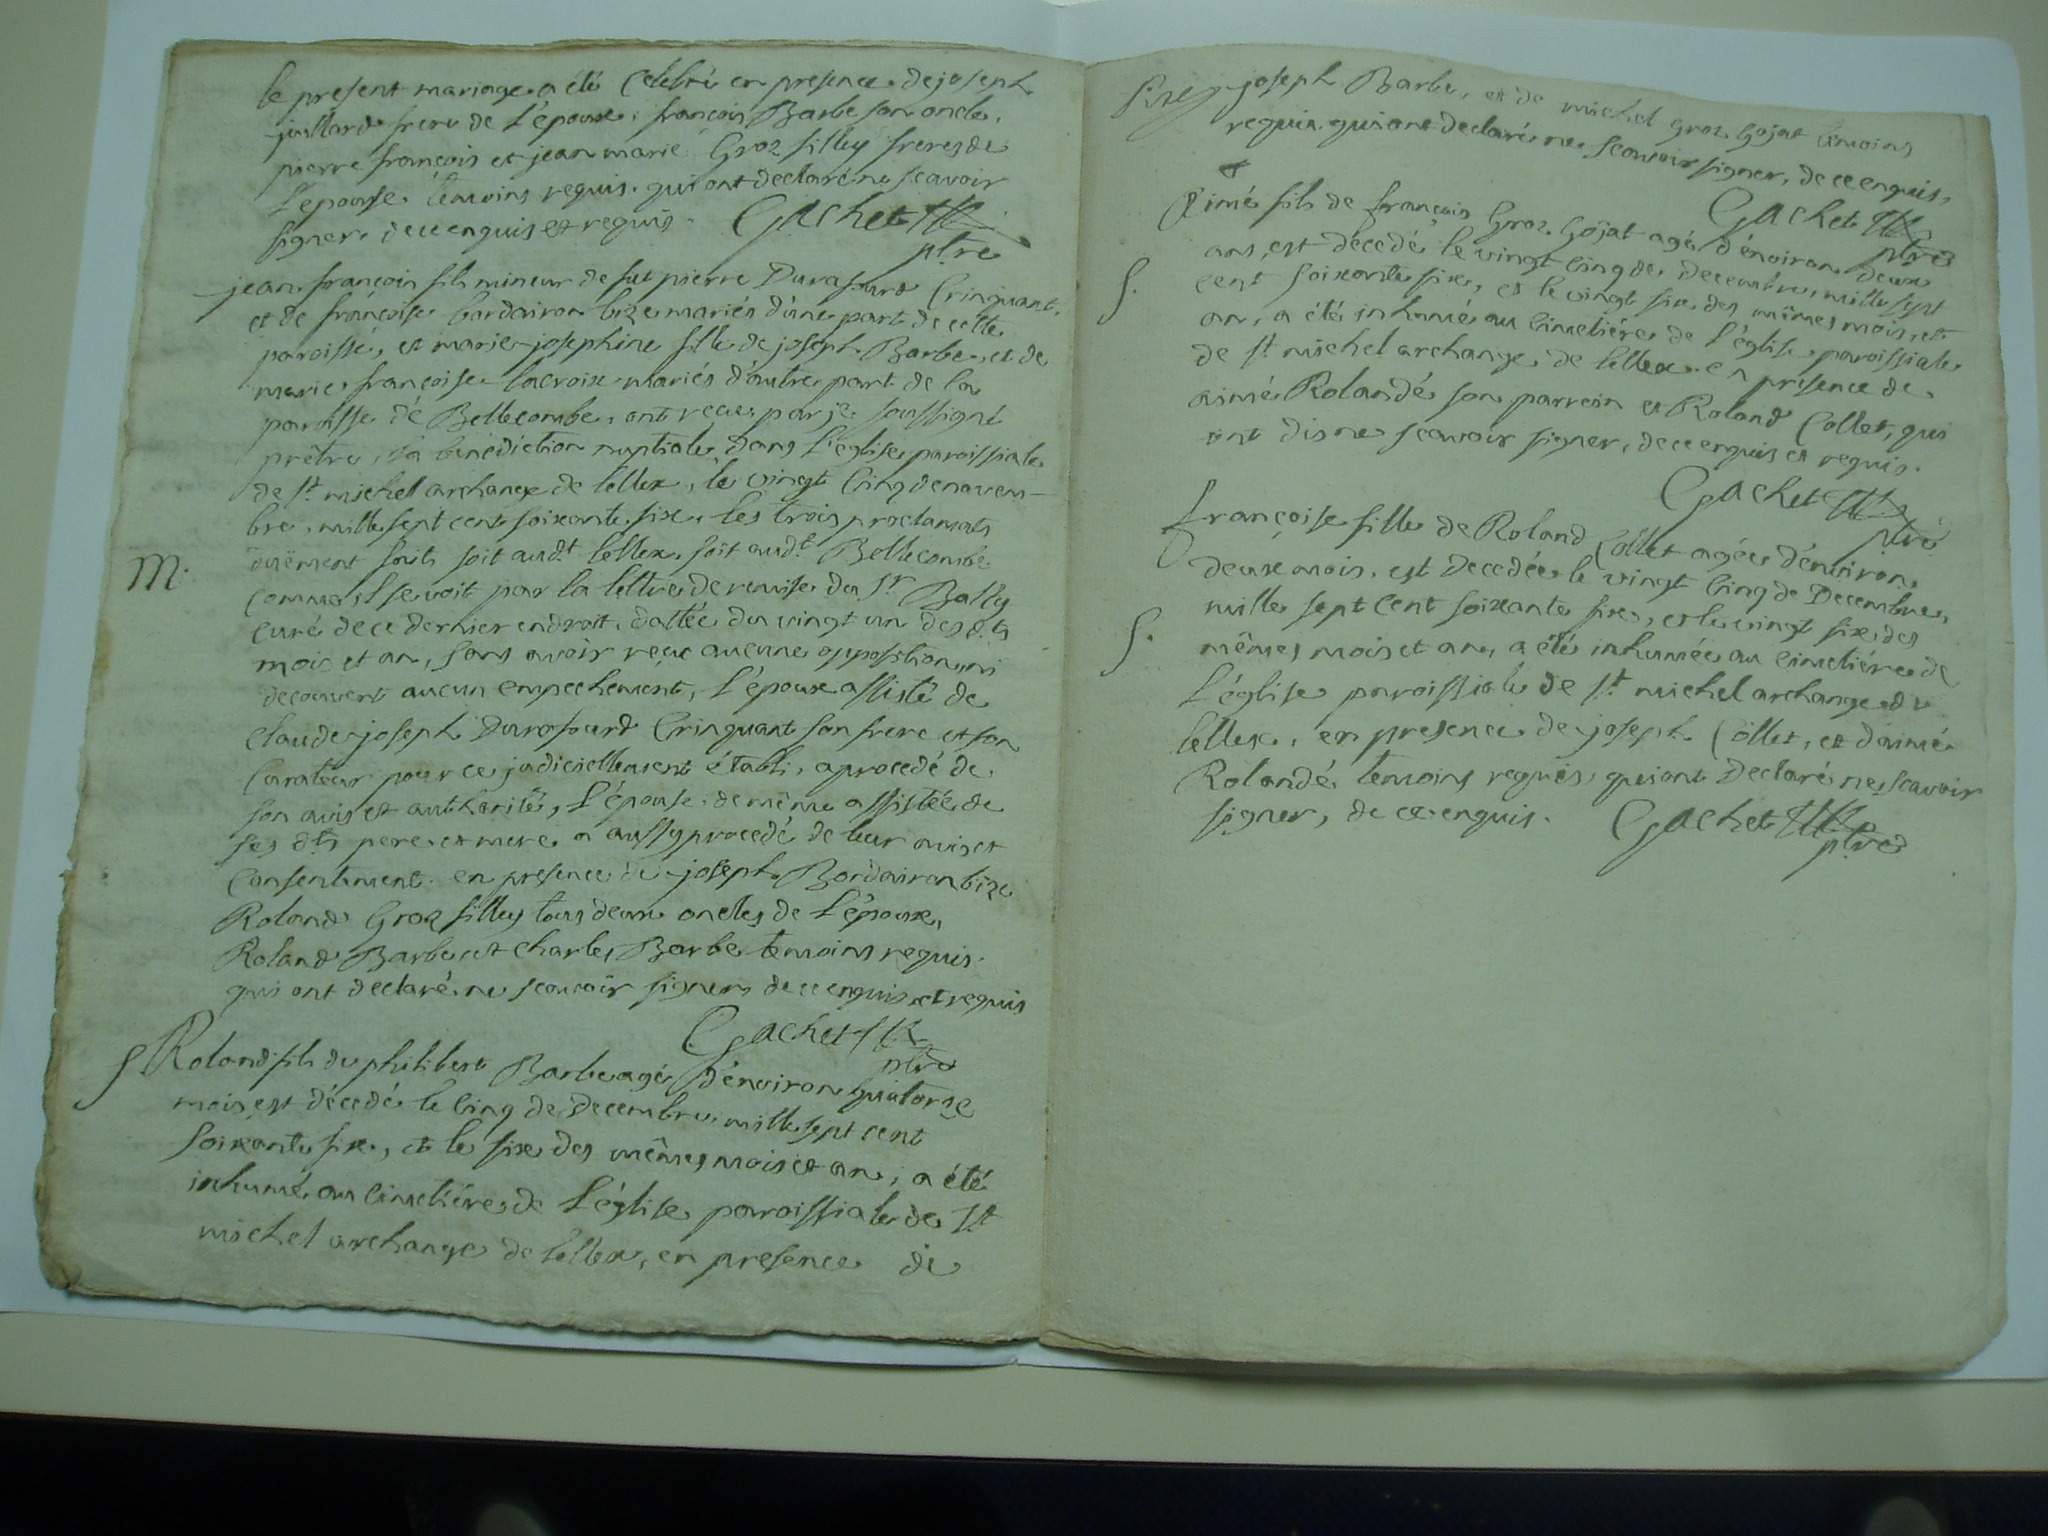 le present mariage a été Celebré en presence de joseph
juillard frere de L'épouse, françois Barbe son oncle,
pierre françois et jean marie Groz filley freres de
L'epouse temoins requis. qui ont declaré ne scavoir
signer. de ce enquis et requis. Gachet
ptre
jean françois fils mineur de fut pierre Durafourd Crinquant,
et de françoise bordairon bize mariés d'une part de cette
paroisse, et marie josephine fille de joseph Barbe, et de
marie françoise Lacroix mariés d'autre part de la
paroisse de Bellecombe, ont recue par je soussigné
prêtre, la bénédiction nuptiale Dans L'église paroissiale
de St michel archange de Lellex, le vingt Cinq de novem-
bre, mille sept cent soixante six, les trois proclamats
duëment faits soit aud.t Lellex, soit aud.t Bellecombe
comme il se voit par la lettre de remise du Sr Bally
Curé de ce dernier endroit, dattée du vingt un des d.ts
mois et an, sans avoir reçue aucune opposition, ni
decouvert aucun empechement, L'époux assisté de
Claude joseph Durafourd Crinquant son frere et son
Curateur pour ce judiciellement établi, a procedé de
son avis et authorité, L'épouse de même assistée de
ses d.ts pere et mere a aussy procedé de leur avis et
Consentement. en presence de joseph Bordairon bize
Roland Groz filley tous deux oncles de L'époux,
Roland Barbe et Charles Barbe temoins requis.
qui ont declaré ne scavoir signer de ce enquis et requis
M.
Gachet
ptre
S. Roland fils de philibert Barbe agé d'environ quatorze
mois, est décedé le Cinq de Decembre, mille sept cent
Soixante six, et le six des mêmes mois et an, a été
inhumé au Cimetiére de L'église paroissiale de St
michel archange de Lellex, en presence de
joseph Barbe, et de michel Groz Gojat temoins
requis. qui ont declaré ne scavoir signer, de ce enquis,
Gachet
ptre
Aimé fils de françois Groz Gojat agé d'environ deux
ans, est décedé le vingt Cinq de Decembre, mille sept
S. cent soixante six, et le vingt six des mêmes mois, et
an, a été inhumé au Cimetiére de L'église paroissiale
de St michel archange de Lellex. en présence de
aimé Rolandé son parrein et Roland Collet, qui
ont dis ne scavoir signer, de ce enquis et requis.
Gachet
ptre
françoise fille de Roland Collet agée d'environ
deux mois, est Decedée le vingt Cinq de Decembre,
mille sept Cent soixante six, et le vingt six des
S. mêmes mois et an, a été inhumée au Cimetiére de
L'église paroissiale de St michel archange de
Lellex, en presence de joseph Collet, et d'aimé
Rolandé temoins requis, qui ont Declaré ne scavoir
signer, de ce enquis. Gachet
ptre